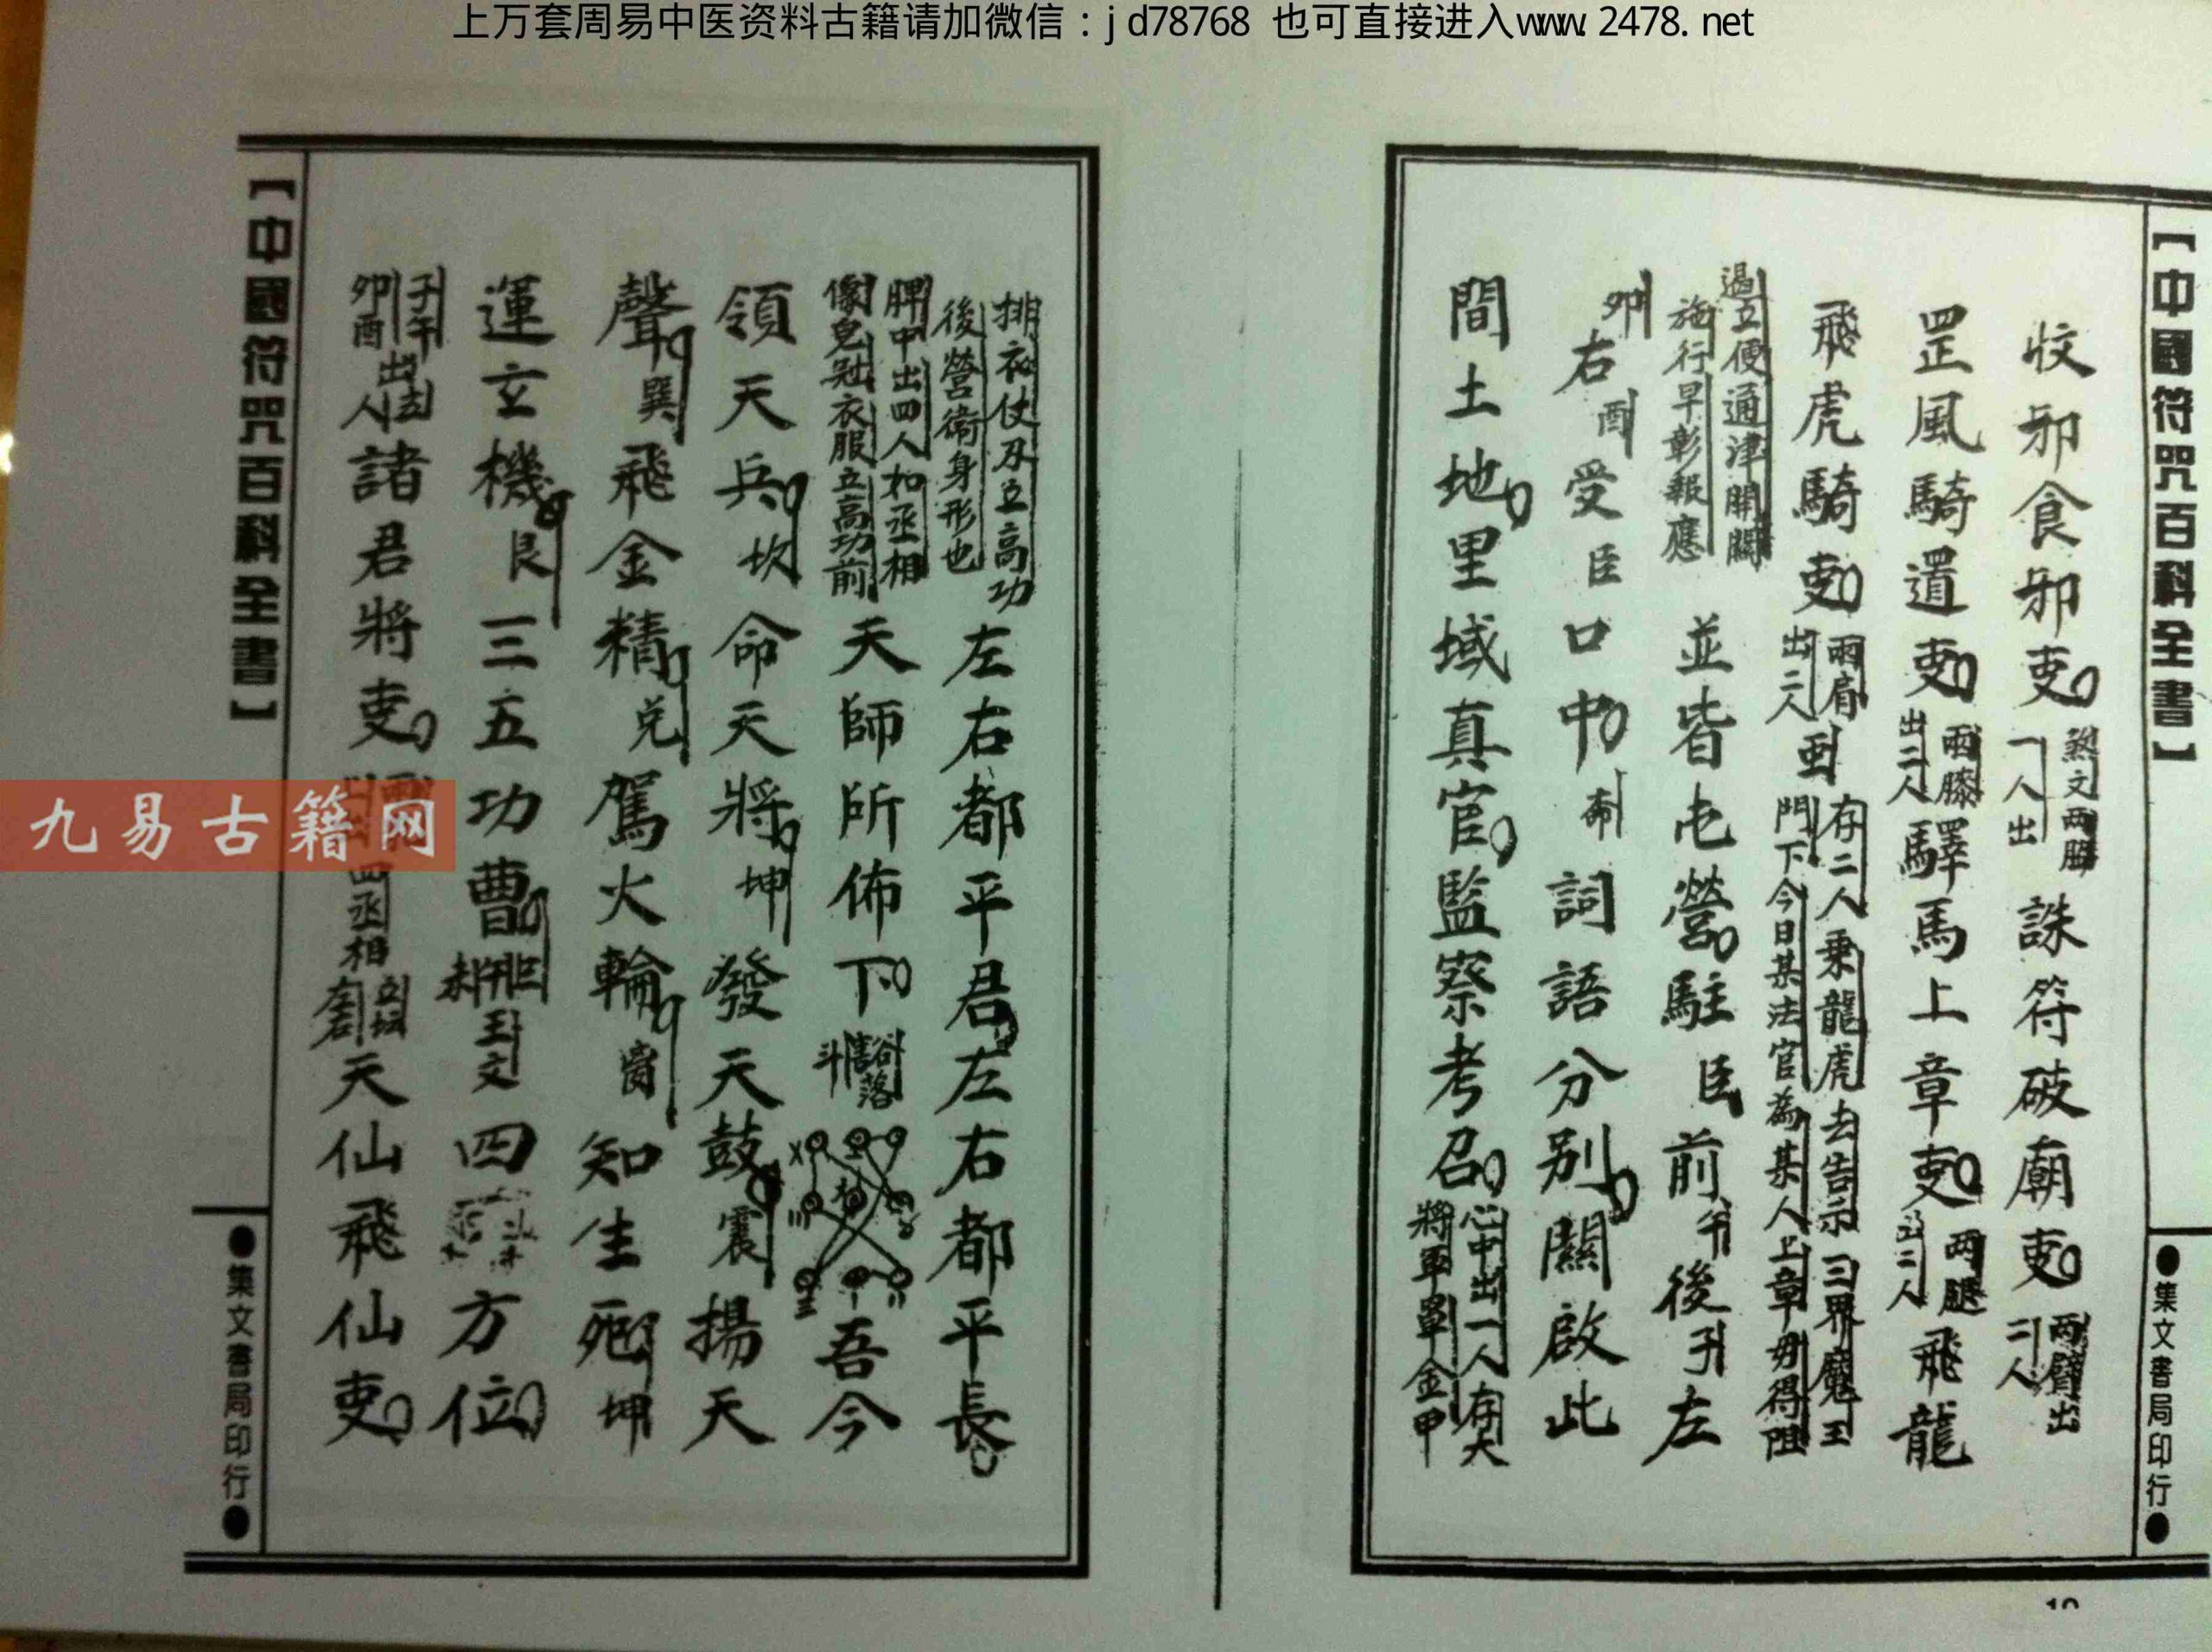 上万套周易中医资料古籍请加微信：jd78768 也可直接进入www.2478.net
【中國符咒百科全書】
●集文書局印行●
收邪食邪吏
煞文两脚
一人出
誅符破廟吏
兩臂出
二人
罡風騎置吏
兩膝
出二人
驛馬上章吏
两腿
出二人
飛龍
飛虎騎吏
兩肩
出二人
存二人乗龍虎去告示三界魔王
門下今日某法官為某人上章毋得阻
過立便通津開關
施行早彰報應
並皆屯營駐臣前午後子左
卯右酉受臣口中詞語分別關啟此
間土地里域真官監察考召
心中出一人存大
將軍單金甲
排衣仗及立高功
後營衛身形也
左右都平君左右都平長
脾中出四人如丞相
像皃冠衣服立高功前
天師所佈下
豁落
斗
吾今
領天兵坎命天將坤發天鼓震揚天
聲巽飛金精兑駕火輪
知生死坤
運玄機艮三五功曹
玉文四
方位
子午
卯酉
出
人
諸君將吏
四丞相
天仙飛仙吏
【中國符咒百科全書】
●集文書局印行●
九易古籍网